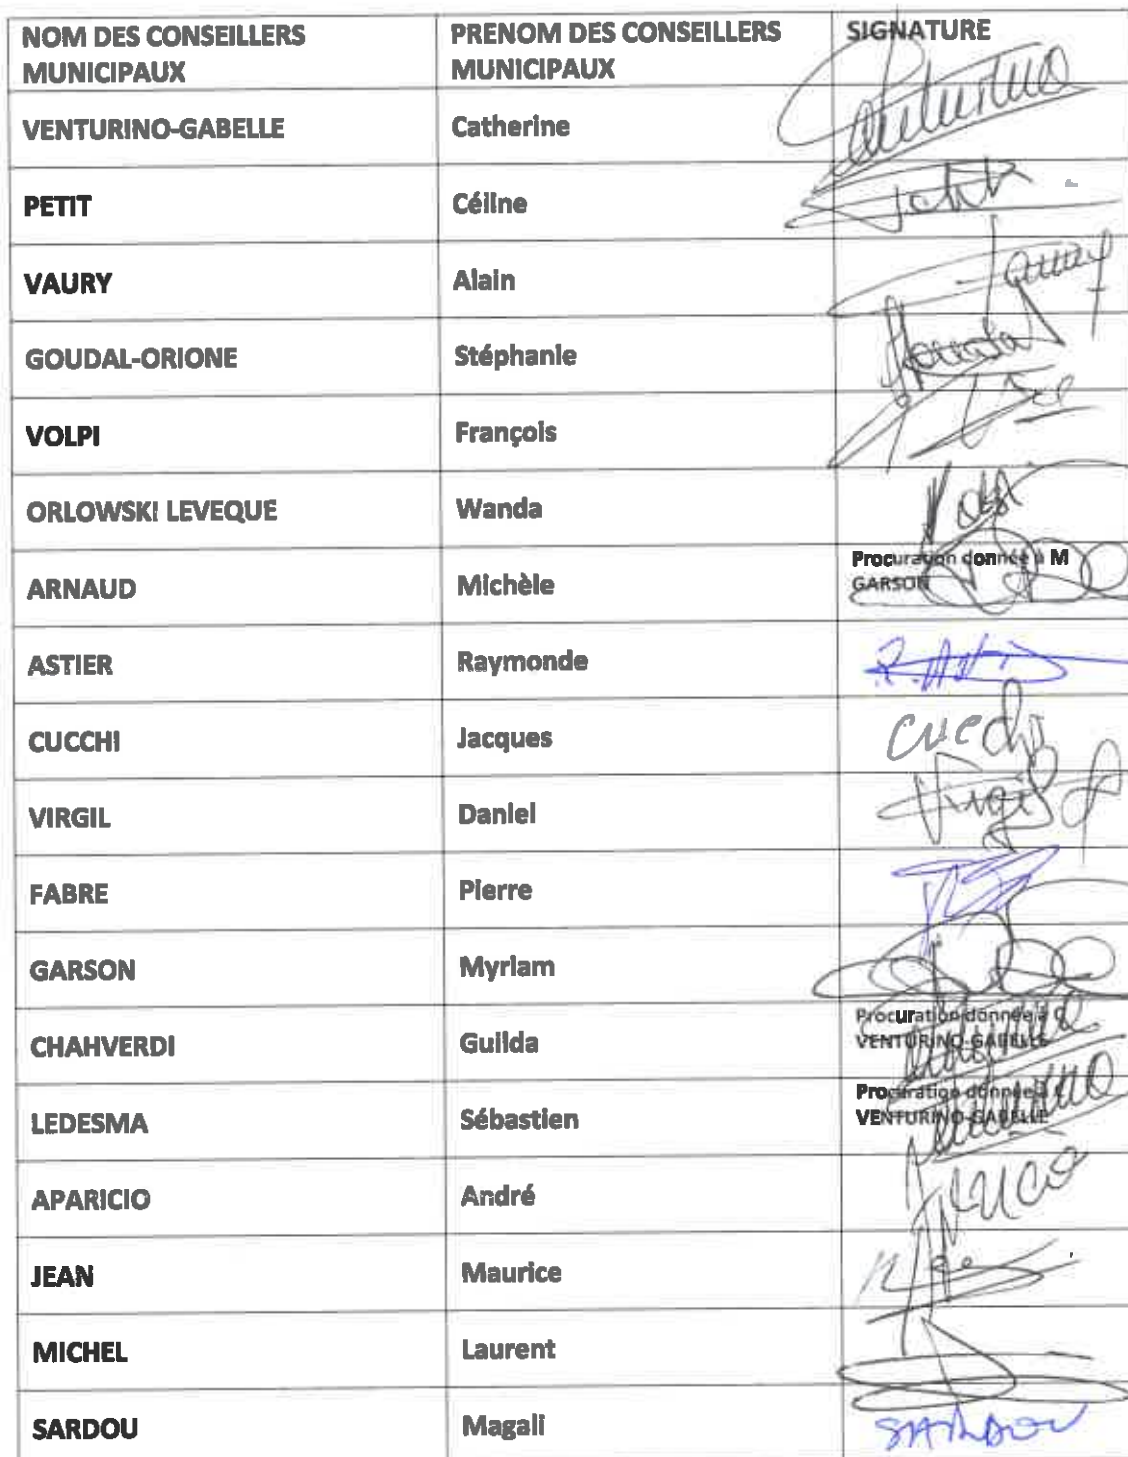 NOM DES CONSEILLERS MUNICIPAUX PRENOM DES CONSEILLERS MUNICIPAUX SIGNATURE
VENTURINO-GABELLE Catherine Venturino
PETIT Céline Petit
VAURY Alain Vaury
GOUDAL-ORIONE Stéphanie
VOLPI François
ORLOWSKI LEVEQUE Wanda
ARNAUD Michèle Procuration donnée à M GARSON
ASTIER Raymonde R. Astier
CUCCHI Jacques Cucchi
VIRGIL Daniel Virgil
FABRE Pierre
GARSON Myriam
CHAHVERDI Guilda Procuration donnée à C VENTURINO-GABELLE Venturino
LEDESMA Sébastien Procuration donnée à C VENTURINO-GABELLE Venturino
APARICIO André
JEAN Maurice
MICHEL Laurent
SARDOU Magali SARDOU